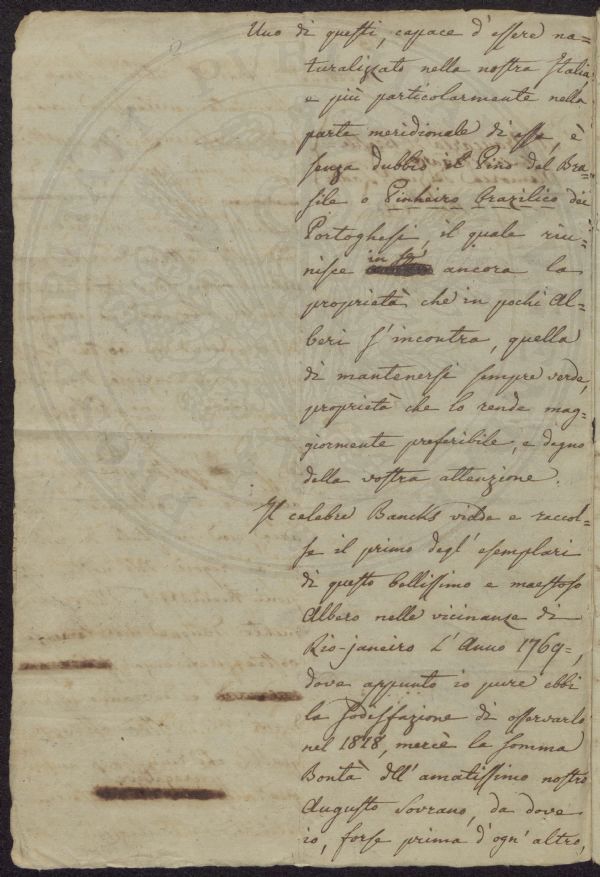 Uno di questi, capace d'essere na=
turalizzato nella nostra Italia
e più particolarmente nella
parte meridionale di essa, è
senza dubbio il Pino del Bra=
sile o Pinheiro brazilico dei
Portoghesi, il quale riu=
nisce in se ancora la
proprietà che in pochi Al=
beri s'incontra, quella
di mantenersi sempre verde,
proprietà che lo rende mag=
giormente preferibile, e degno
della vostra attenzione.
Il celebre Bancks vidde e raccol=
se il primo degl'esemplari
di questo bellissimo e maestoso
Albero nelle vicinanze di
Rio-janeiro L'Anno 1769=,
dove appunto io pure ebbi
la sodisfazione di osservarlo
nel 1818, mercè la somma
Bontà dell'amatissimo nostro
Augusto Sovrano, da dove
io, forse prima d'ogn'altro,